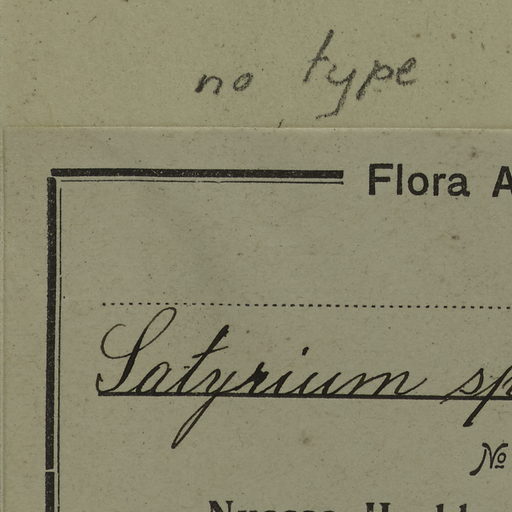 no type
Flora A
Satyrium sp
№